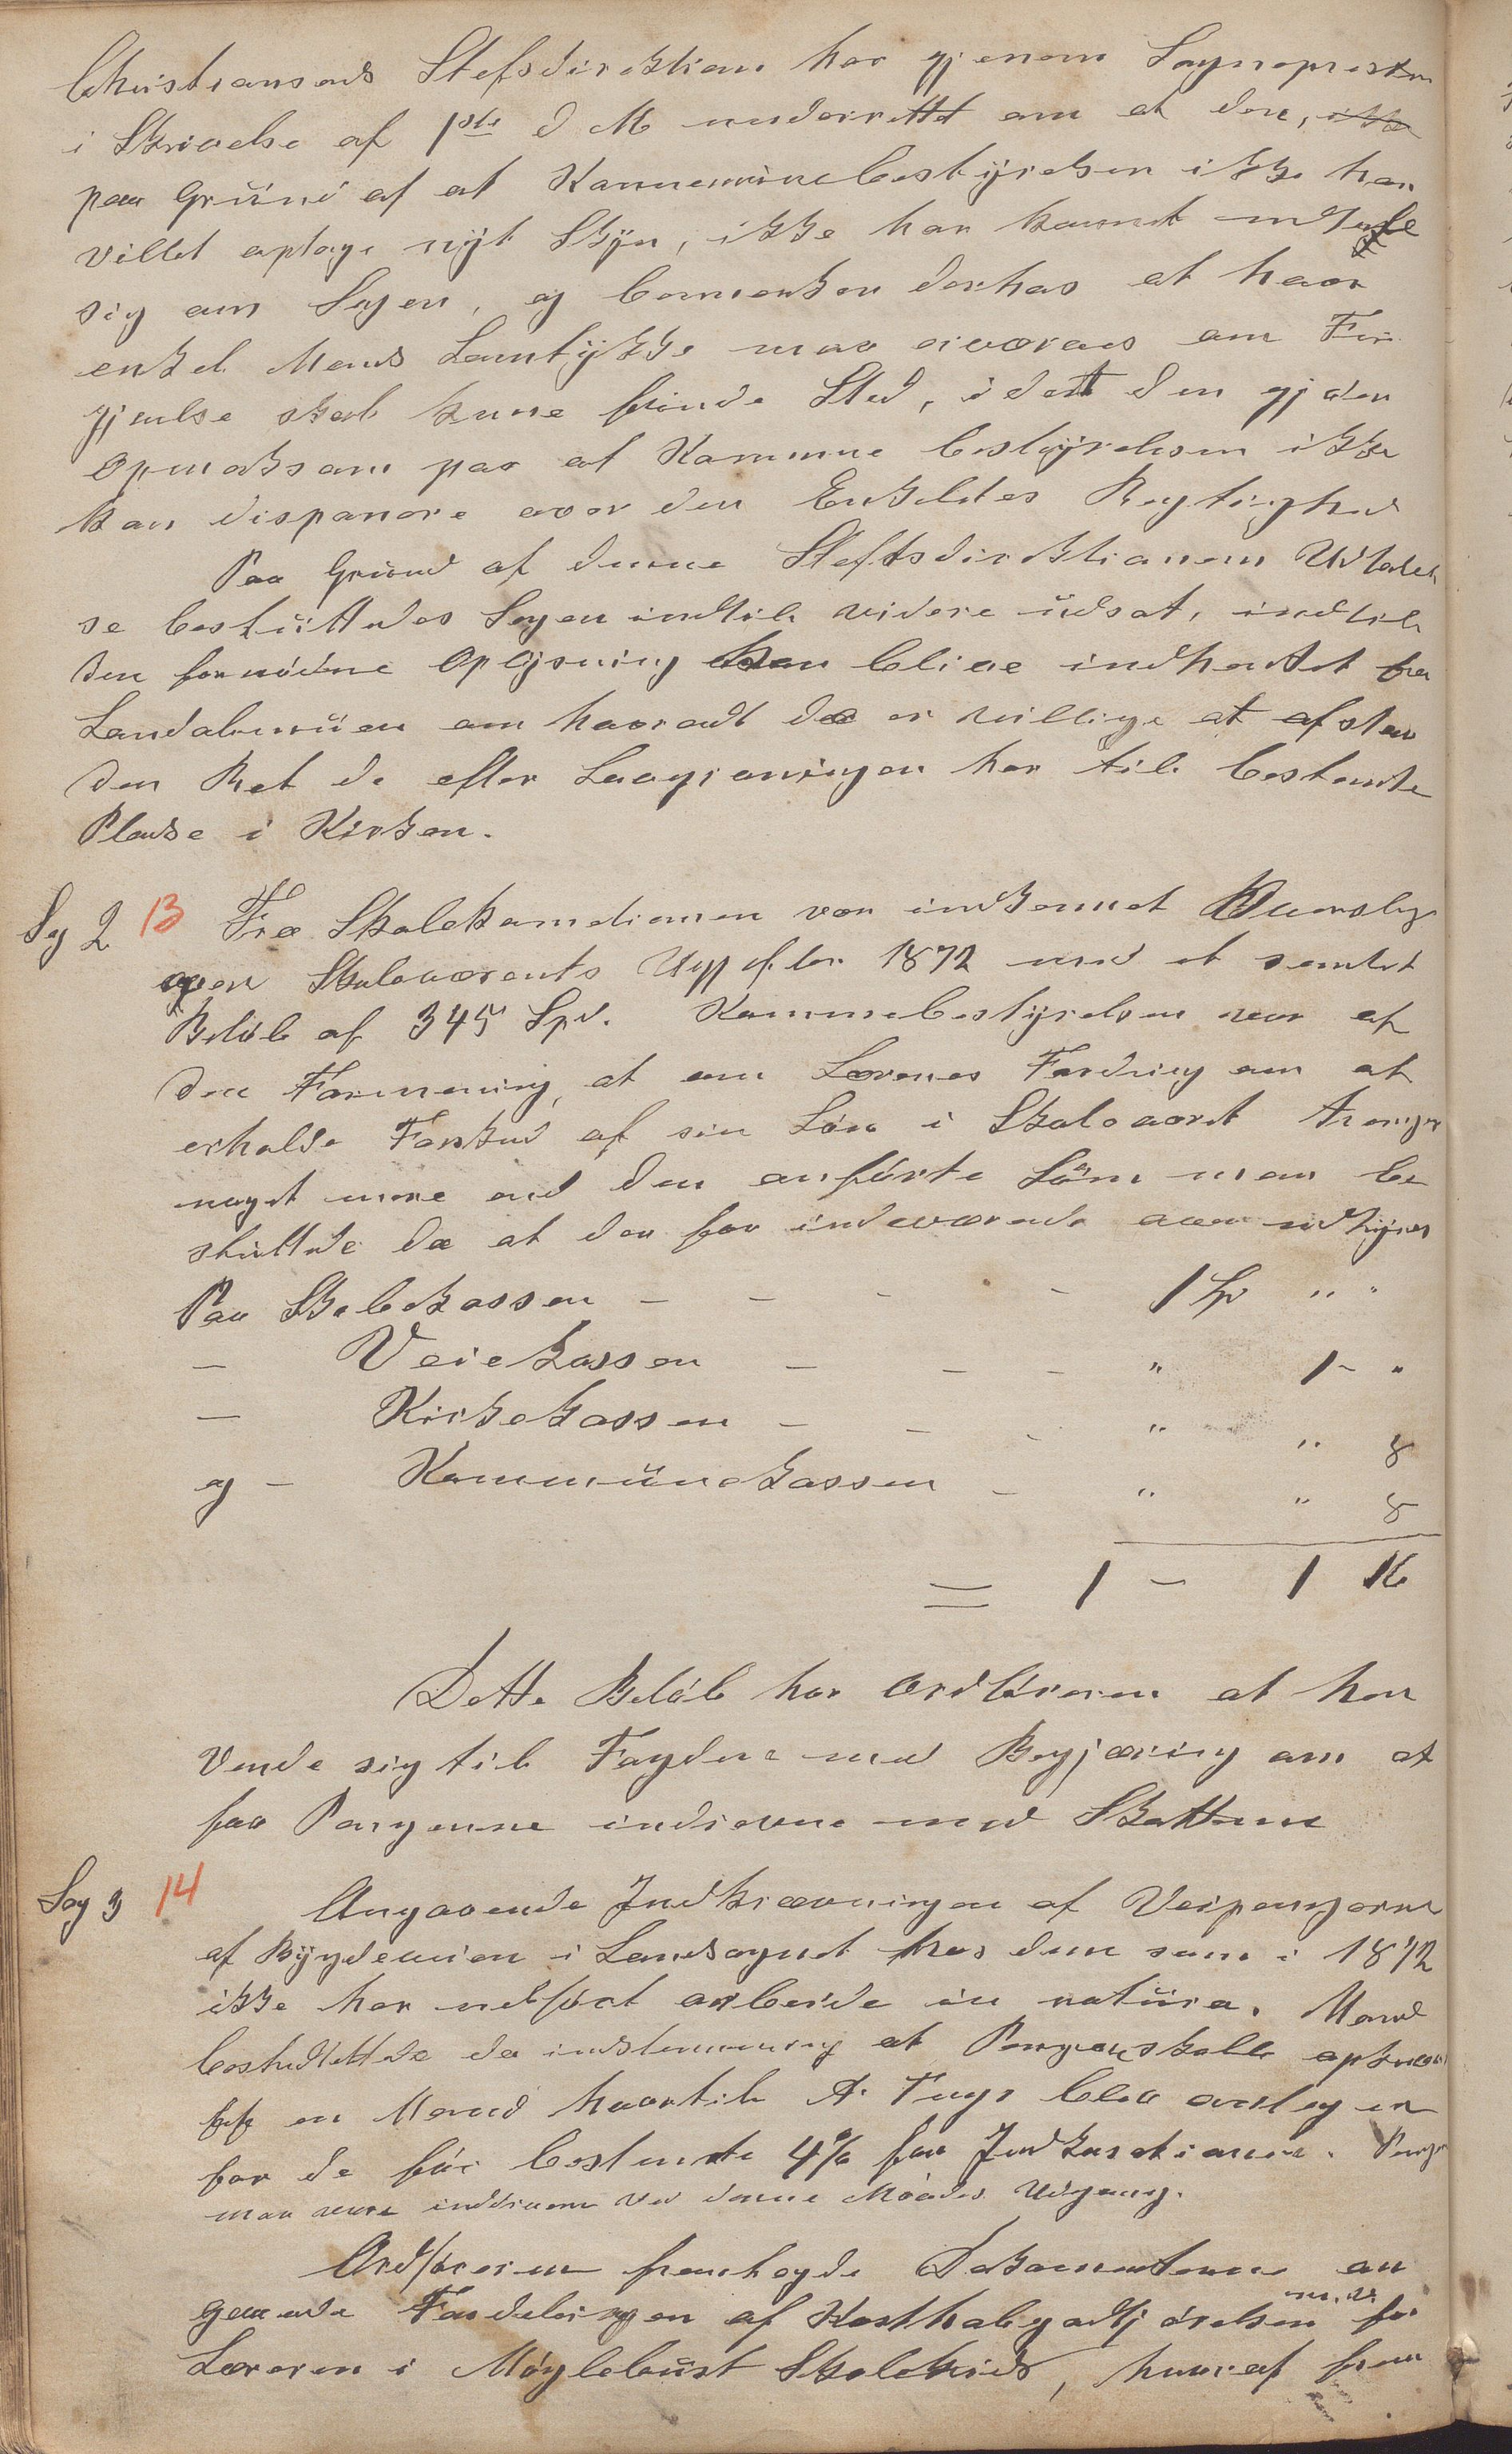 Christiansands Steftsdirektion har gjenem Sogneprsten
i Skrivelse af 1ste d M underrettet om at den, ikke
paa Grúnd af at Kommunebestÿrelsen ikke har
villet optage nÿt Skjøn, ikke har kunnet udtale
sig om Sagen, og bemerker derhos at hver
enkel Mands Samtÿkke maa erværves om For
gjøelse skal kune finde Sted, idet den gjør
Opmerksom paa at Kommune bestÿrelsen ikke
kan disponere over den Enkeltes Rettighed
Paa Grúnd af denne Steftsdirektionens Udtalel
se besluttedes Sagen indtil videre údsat, indtil
den fornódne Oplÿsning kan blive indhentet fra
Landalmúen om hvorvidt de er villige at afstaa
den Ret de efter Lovgivningen har til bestemte
Pladse i Kirken.
Sag 2 13 Fra Skolekomitionen var indkommet
over Skolevæsents Udgifter 1872 med et samlet
Belób af 345 Spd. Kommebestÿrelsen var af
den Formening, at om Lærenes Fordring om at
erholde Forskud af sin Lón i Skolevæset trenger
noget mere end den anfórte Sŭm man be
sluttede da at der for indeværende aar udlignes
Paa Skolekassen - - - - 1 Sp " "
- Veiekassen - - - " 1 - "
- Kirkekassen - - - " " 8
og - Kommúnekassen - " " 8
= 1 - 1 16
Dette Belób har Ordfóreren at hen
vende sig til Fogden med Begjæring om at
faa Pengenne indrevne med Skatten
Sag 3 14 Angaaende Indkrævningen af Veipengerne
af Bÿgdeveien i Landsognet hos dem som i 1872
ikke har udfórt arbeide in natúra. Mand
besluttede da indstemmig at Pengene skulle opkræv
en Mand hvortil A. Tugs blev antagen
for de fór bestemte 4% for Indkasetionen. Penge
maa være inddrevne ved denne Maaneds Udgang.
Ordfóreren fremlagde Dokomenterne an
gaaende Fordelingen af Kostholgodtjórelsen m. v. for
Læreren i Móglebúst Skolekrids, hvoraf frem